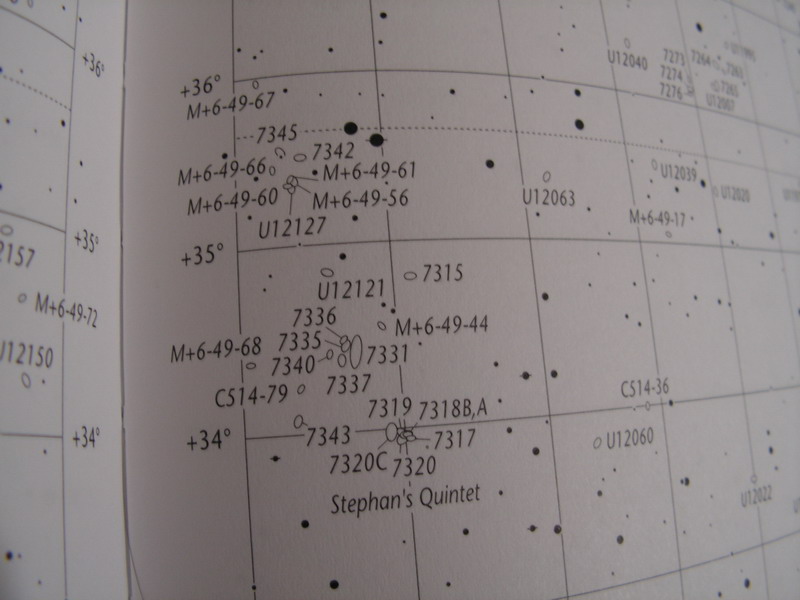 +36°
+36°
M+6-49-67
U12040
7273
7264
7274
7276
7345
7342
M+6-49-66
M+6-49-61
M+6-49-60
M+6-49-56
U12127
U12063
U12039
U12020
M+6-49-17
+35°
+35°
M+6-49-72
U12121
7315
7336
7335
7340
7331
7337
M+6-49-44
M+6-49-68
CS14-79
7319
7318B,A
7343
7317
7320C
7320
+34°
+34°
Stephan's Quintet
CS14-36
U12060
U12022